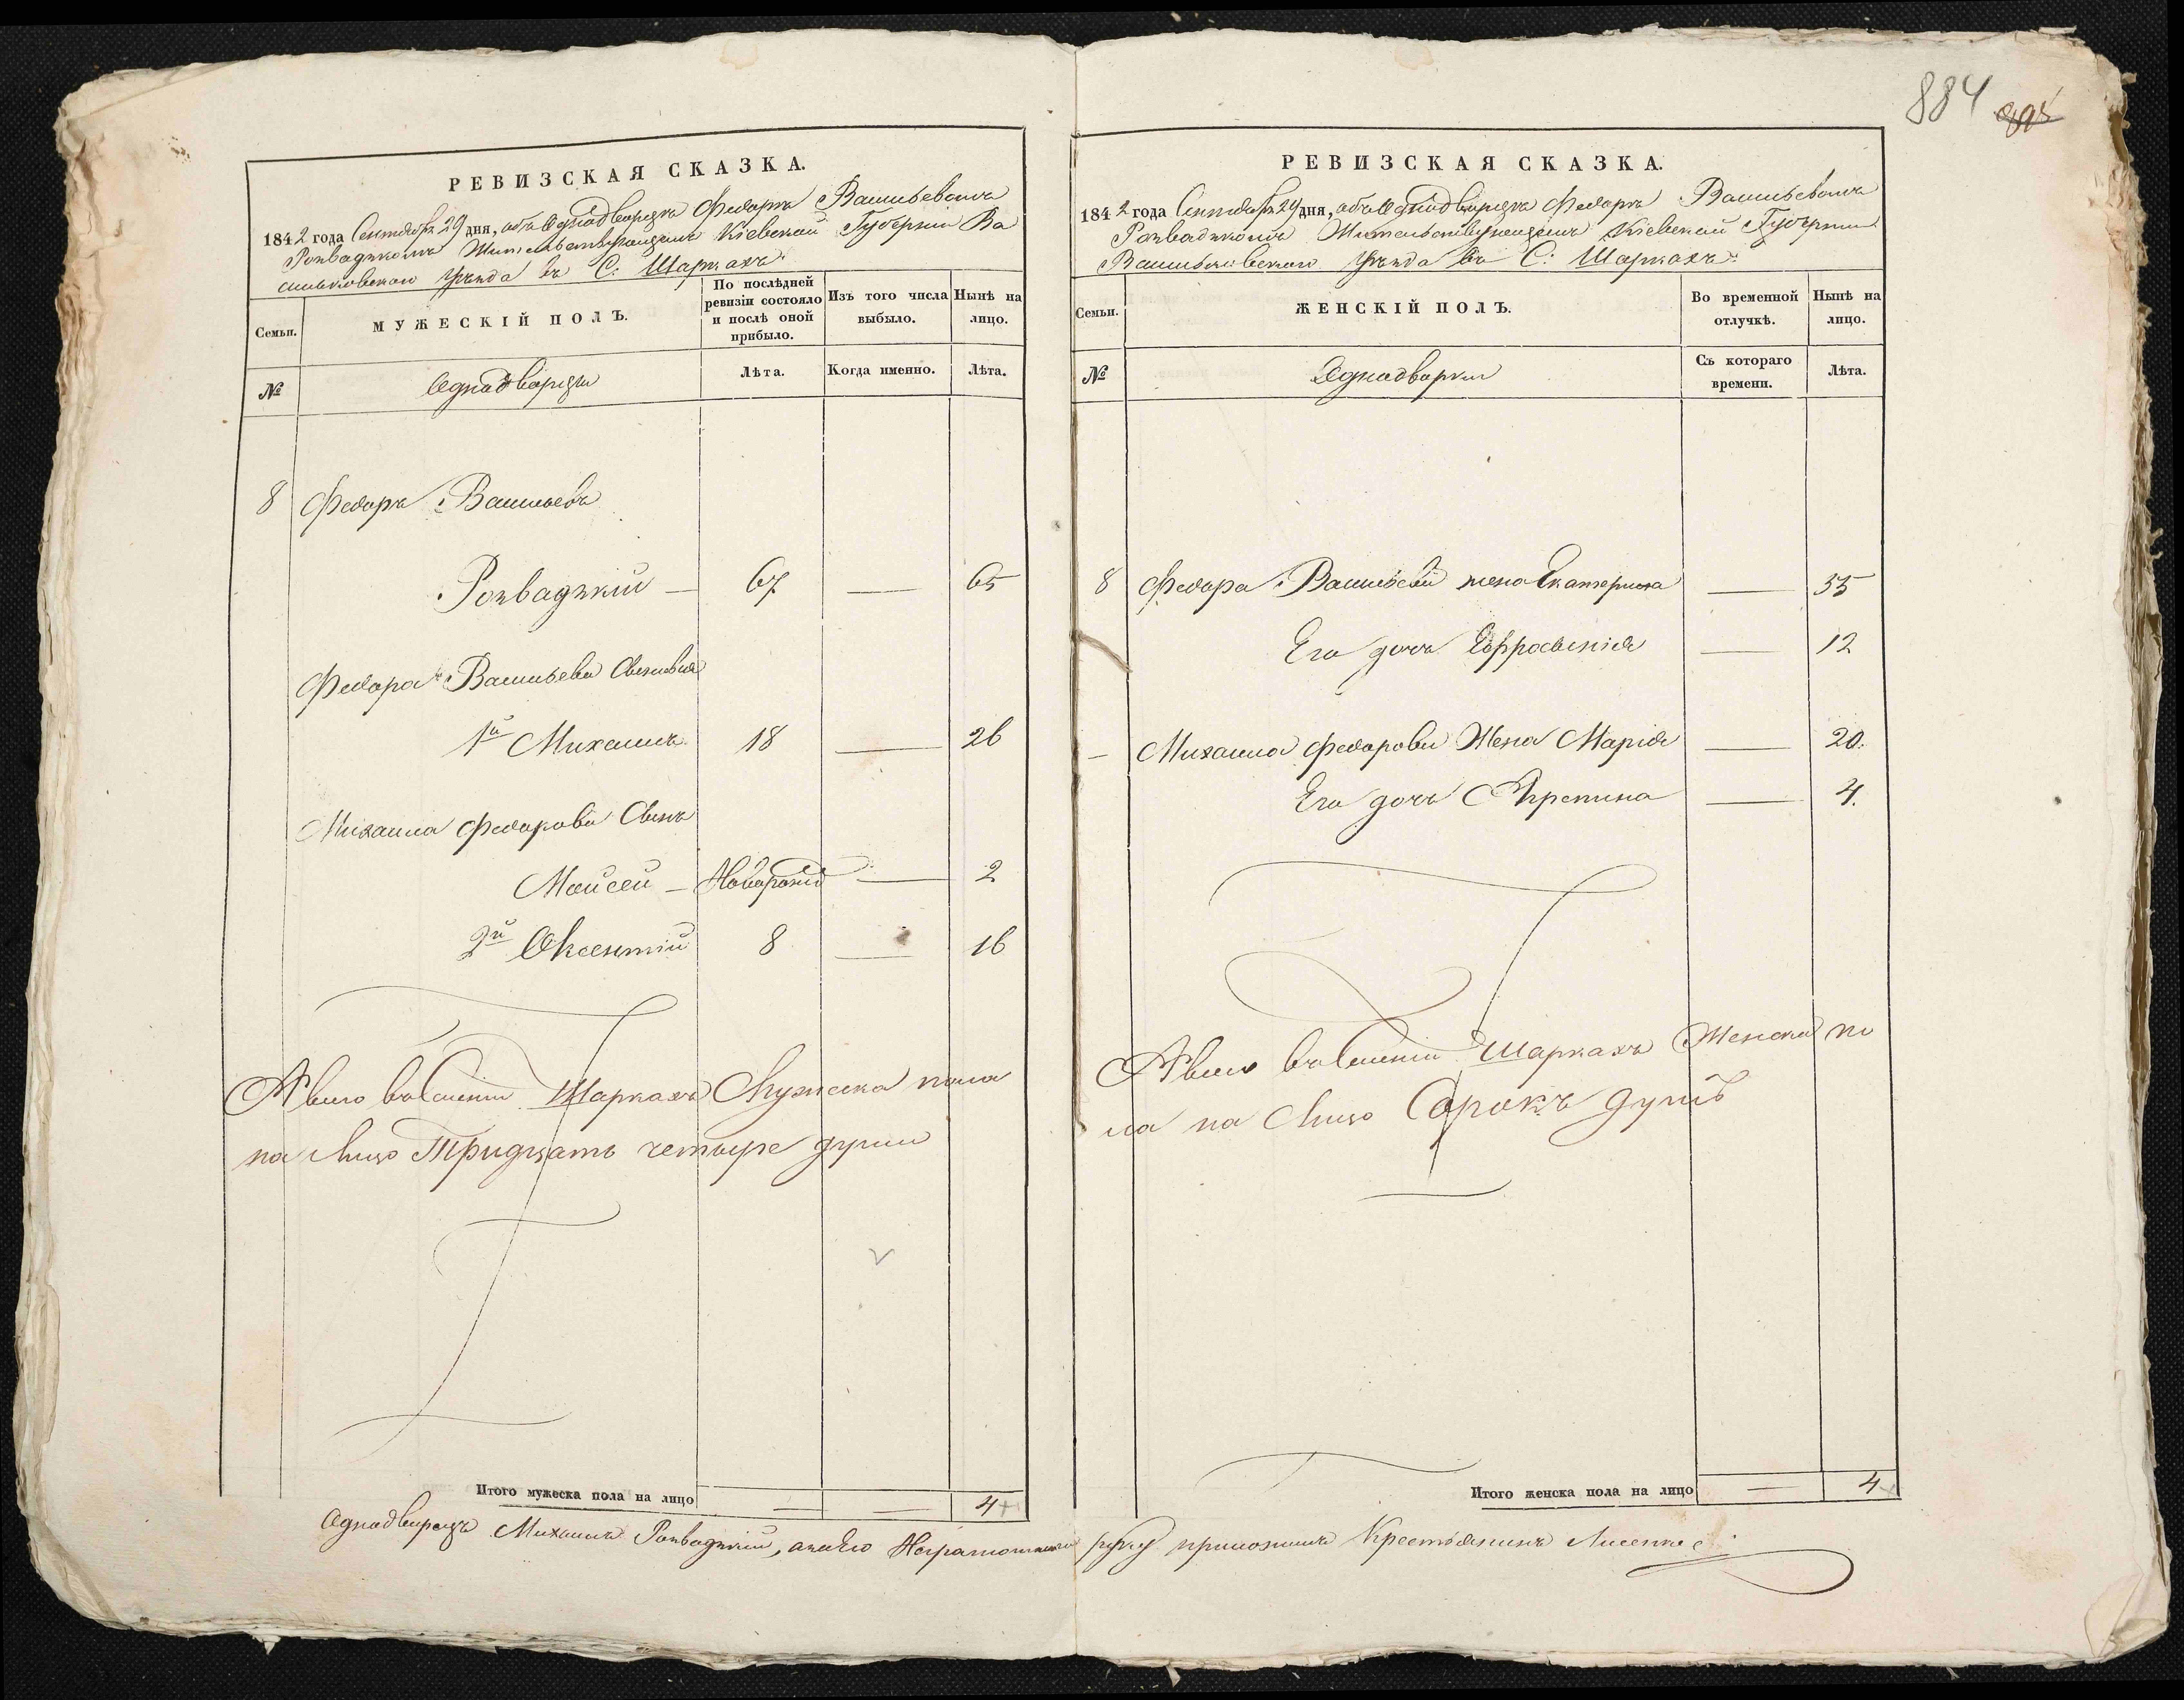 884 895
РЕВИЗСКАЯ СКАЗКА.
1842 года Сентября 29 дня, объ Однодворцѣ Федорѣ Васильевомъ
Розвадзкомъ Жительствующемъ Кіевской Губерніи Ва
сильковскаго уѣзда въ С: Шаркахъ.
Семьи.
МУЖЕСКІЙ ПОЛЪ.
По послѣдней ревизіи состояло и послѣ оной прибыло.
Изъ того числа выбыло.
Нынѣ на лицо.
№
Однодворцы
Лѣта.
Когда именно.
Лѣта.
8 Федоръ Васильевъ
Розвадзкій — 67 — 65
Федора Васильева Сыновья
1й Михаилъ 18 — 26
Михаила Федорова Сынъ
Мойсей — Новорожд — 2
2й Оксентій 8 — 16
А всего въ селеніи Шаркахъ Мужеска пола
на лицо Тридцать четыре души
Итого мужеска пола на лицо — — 4
РЕВИЗСКАЯ СКАЗКА.
1842 года Сентября 29 дня, объ Однодворцѣ Федорѣ Васильевомъ
Розвадзкомъ Жительствующемъ Кіевской Губерніи
Васильковскаго уѣзда въ С: Шаркахъ.
Семьи.
ЖЕНСКІЙ ПОЛЪ.
Во временной отлучкѣ.
Нынѣ на лицо.
№
Однодворки
Съ котораго времени.
Лѣта.
8 Федора Васильева жена Екатерина — 55
Его дочь Ефросинія — 12
— Михаила Федорова Жена Марія — 20.
Его дочь Агрепина — 4.
А всего въ селеніи Шаркахъ Женска по
ла на лицо Сорокъ душъ
Итого женска пола на лицо — 4
Однодворецъ Михаилъ Розвадзкій, а за его руку приложилъ Крестьянинъ Лисенко